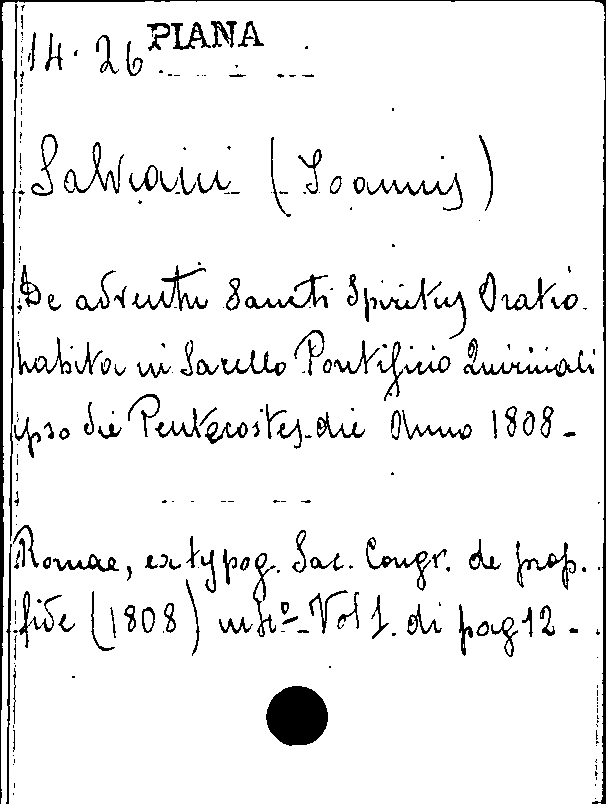 PIANA
14.26
Salviani (Ioannis)
De adventu Sancti Spiritus Oratio
habita in Sacello Pontificio Quirinali
ipso die Pentecostes die Anno 1808 -
Romae, ex typog. Sac. Congr. de prop.
fide (1808) in 4º - Vol 1. di pag 12 -